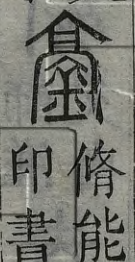 脩能
印書